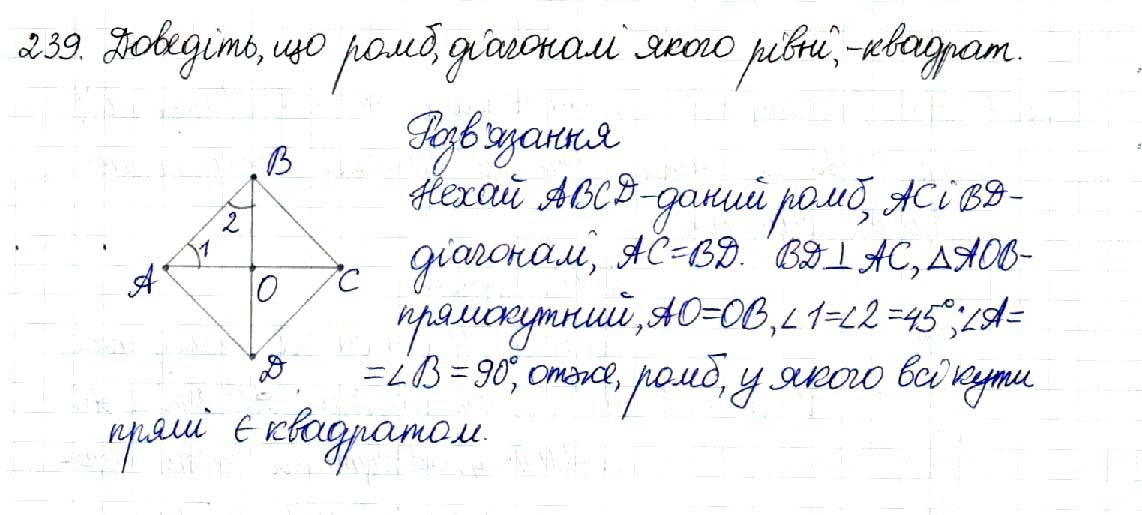 239. Доведіть, що ромб, діагоналі якого рівні, - квадрат.
Розв'язання
Нехай ABCD - даний ромб, AC і BD -
діагоналі, AC = BD. BD ⊥ AC, △AOB -
прямокутний, AO = OB, ∠1 = ∠2 = 45°; ∠A =
= ∠B = 90°, отже, ромб, у якого всі кути
прямі є квадратом.
B
2
1
A
O
C
D